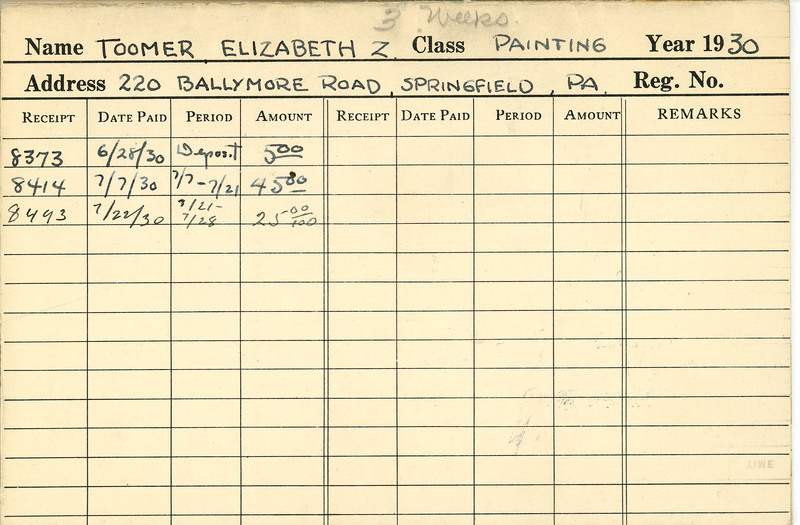 3 Weeks.
Name TOOMER, ELIZABETH Z. Class PAINTING Year 1930
Address 220 BALLYMORE ROAD, SPRINGFIELD, PA. Reg. No.
RECEIPT DATE PAID PERIOD AMOUNT RECEIPT DATE PAID PERIOD AMOUNT REMARKS
8373 6/28/30 Deposit 5 00
8414 7/7/30 7/7-7/21 45 00
8493 7/22/30 7/21-7/28 25 00/100